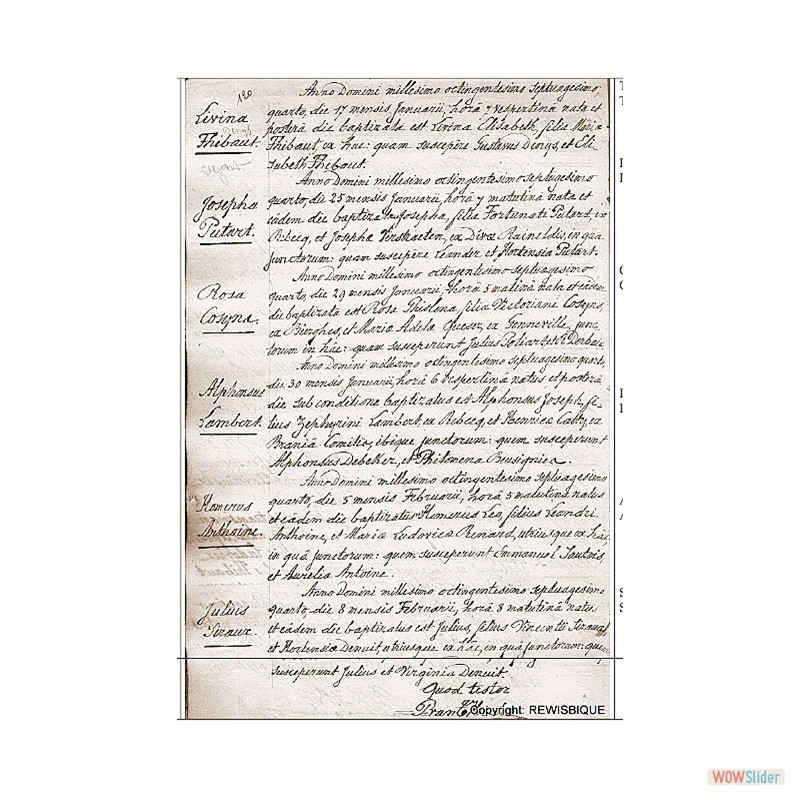 120
Livina
Thibaut.
Anno Domini millesimo octingentesimo septuagesimo
quarto, die 17 mensis Januarii, horâ 7 vespertinâ nata et
posterâ die baptizata est Livina Elisabeth, filia Maria
Thibaut, ex hac: quam suscepere Gustavus Denys, et Eli
sabeth Thibaut.
Josepha
Putart.
Anno Domini millesimo octingentesimo septuagesimo
quarto, die 25 mensis Januarii, horâ 7 matutinâ nata et
eâdem die baptizata Josepha, filia Fortunati Putart, ex
Rebecq, et Josepha Verstraeten, ex Divæ Raineldis, in quâ
junctorum: quam suscepere Leander et Hortensia Putart.
Rosa
Cosyns.
Anno Domini millesimo octingentesimo septuagesimo
quarto, die 29 mensis Januarii, horâ 5 matinâ nata et eâdem
die baptizata est Rosa Ghislena, filia Victoriani Cosyns,
ex Bierghes, et Maria Adela ex Genneville, junc
torum in hâc: quam susceperunt Julius et
Alphonsus
Lambert.
Anno Domini millesimo octingentesimo septuagesimo quarto,
die 30 mensis Januarii, horâ 6 vespertinâ natus et posterâ
die sub conditione baptizatus est Alphonsus Joseph, fi-
lius Zephyrini Lambert, ex Rebecq, et Henrica Catty, ex
Braniâ Comitis, ibique junctorum: quem susceperunt
Alphonsus Debelker, et Philomena
Homerus
Anthoine.
Anno Domini millesimo octingentesimo septuagesimo
quarto, die 5 mensis Februarii, horâ 5 matutinâ natus
et eâdem die baptizatus Homerus Leo, filius Leandri
Anthoine, et Maria Ludovica Renard, utriusque ex hâc,
in quâ junctorum: quem susceperunt Emmanuel
et Aurelia Antoine.
Julius
Siraux.
Anno Domini millesimo octingentesimo septuagesimo
quarto, die 8 mensis Februarii, horâ 8 matutinâ natus
et eâdem die baptizatus est Julius, filius Vincentii Siraux,
et Hortensiæ Denuit, utriusque ex hâc, in quâ junctorum: quem
susceperunt Julius et Virginia Denuit.
Quod testor
Copyright: REWISBIQUE
WOWSlider